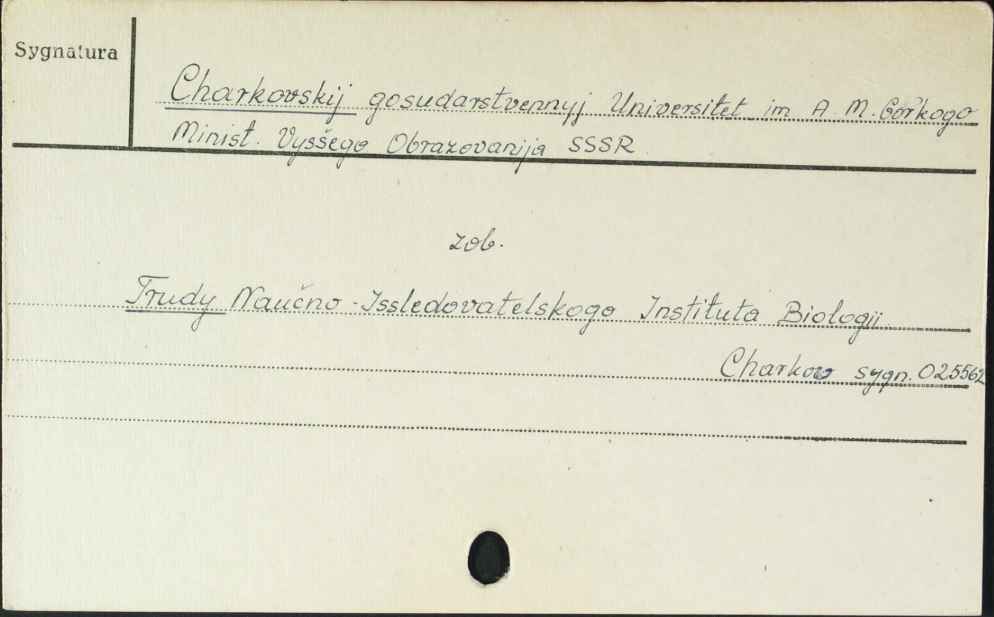 Sygnatura
Charkovskij gosudarstvennyj Universitet im A M. Gor'kogo
Minist. Vysšego Obrazovanija SSSR
zob.
Trudy Naučno-Issledovatelskogo Instituta Biologii
Charkow sygn. 025562